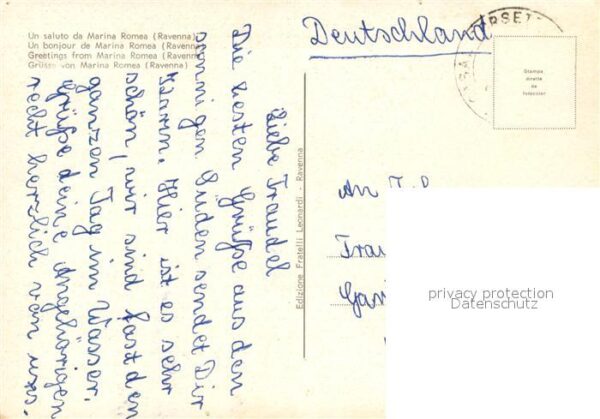 Un saluto da Marina Romea (Ravenna)
Un bonjour de Marina Romea (Ravenna)
Greetings from Marina Romea (Ravenna)
Grüsse von Marina Romea (Ravenna)
Liebe Traudel
Die besten Grüße aus den
sonnigen Süden sendet Dir
Karin. Hier ist es sehr
schön, wir sind fast den
ganzen Tag im Wasser.
Grüße deine Angehörigen
recht herzlich von uns.
Edizione Fratelli Leonardi - Ravenna
Deutschland
Stampa
diretta
da
fotocolor
An
Trau
privacy protection
Datenschutz